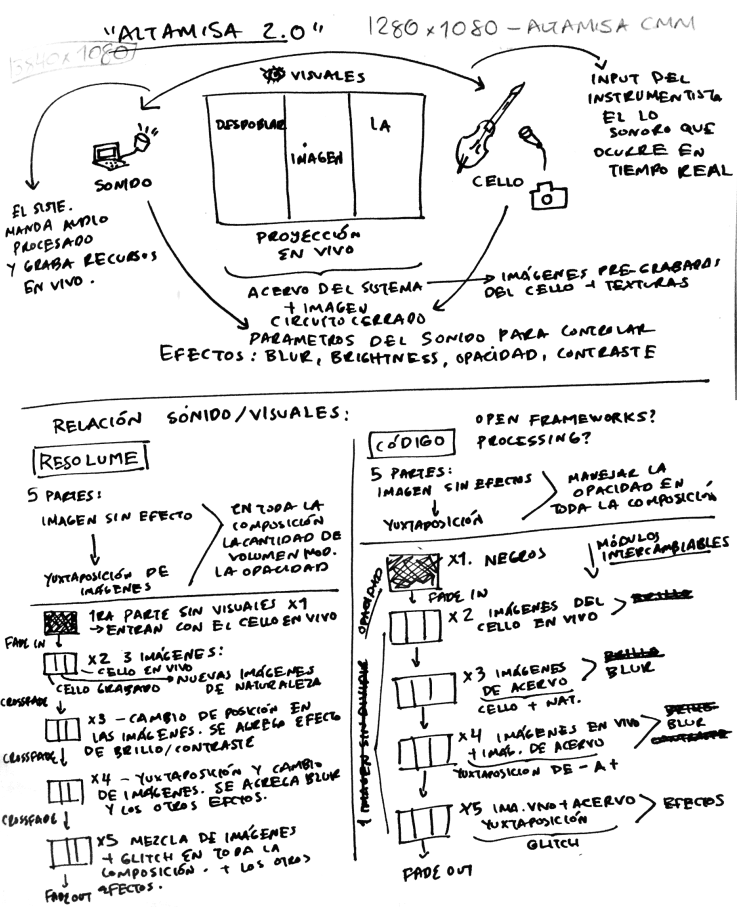 "ALTAMISA 2.0"
1280 x 1080 - ALTAMISA CMM
3840 x 1080
VISUALES
DESPOBLAR
LA
IMAGEN
SONIDO
CELLO
INPUT DEL
INSTRUMENTISTA
EL LO
SONORO QUE
OCURRE EN
TIEMPO REAL
EL SISTE.
MANDA AUDIO
PROCESADO
Y GRABA RECURSOS
EN VIVO.
PROYECCIÓN
EN VIVO
ACERVO DEL SISTEMA
+ IMAGEN
CIRCUITO CERRADO
IMÁGENES PRE-GRABADAS
DEL CELLO + TEXTURAS
PARAMETROS DEL SONIDO PARA CONTROLAR
EFECTOS: BLUR, BRIGHTNESS, OPACIDAD, CONTRASTE
RELACIÓN SONIDO/VISUALES:
RESOLUME
5 PARTES:
IMAGEN SIN EFECTO
YUXTAPOSICIÓN DE
IMÁGENES
EN TODA LA
COMPOSICIÓN
LA CANTIDAD DE
VOLUMEN MOD.
LA OPACIDAD
1RA PARTE SIN VISUALES X1
→ ENTRAN CON EL CELLO EN VIVO
FADE IN
X2 3 IMÁGENES:
- CELLO EN VIVO
CELLO GRABADO → NUEVAS IMÁGENES
DE NATURALEZA
CROSSFADE
X3 - CAMBIO DE POSICIÓN EN
LAS IMÁGENES. SE AGREGA EFECTO
DE BRILLO/CONTRASTE
CROSSFADE
X4 - YUXTAPOSICIÓN Y CAMBIO
DE IMÁGENES. SE AGREGA BLUR
Y LOS OTROS EFCTOS.
CROSSFADE
X5 MEZCLA DE IMÁGENES
+ GLITCH EN TODA LA
COMPOSICIÓN. + LOS OTROS
EFECTOS.
FADE OUT
CÓDIGO
OPEN FRAMEWORKS?
PROCESSING?
5 PARTES:
IMAGEN SIN EFECTOS
YUXTAPOSICIÓN
MANEJAR LA
OPACIDAD EN
TODA LA COMPOSICIÓN
MÓDULOS
INTERCAMBIABLES
X1. NEGROS
FADE IN
OPACIDAD
1 IMAGEN SIN DIVIDIR
X2 IMÁGENES DEL
CELLO EN VIVO
BRILLO
X3 IMÁGENES
DE ACERVO
CELLO + NAT.
BRILLO
BLUR
X4 IMÁGENES EN VIVO
+ IMAG. DE ACERVO
YUXTAPOSICION DE - A +
BLUR
CONTRASTE
X5 IMA. VIVO + ACERVO
YUXTAPOSICIÓN
GLITCH
EFECTOS
FADE OUT